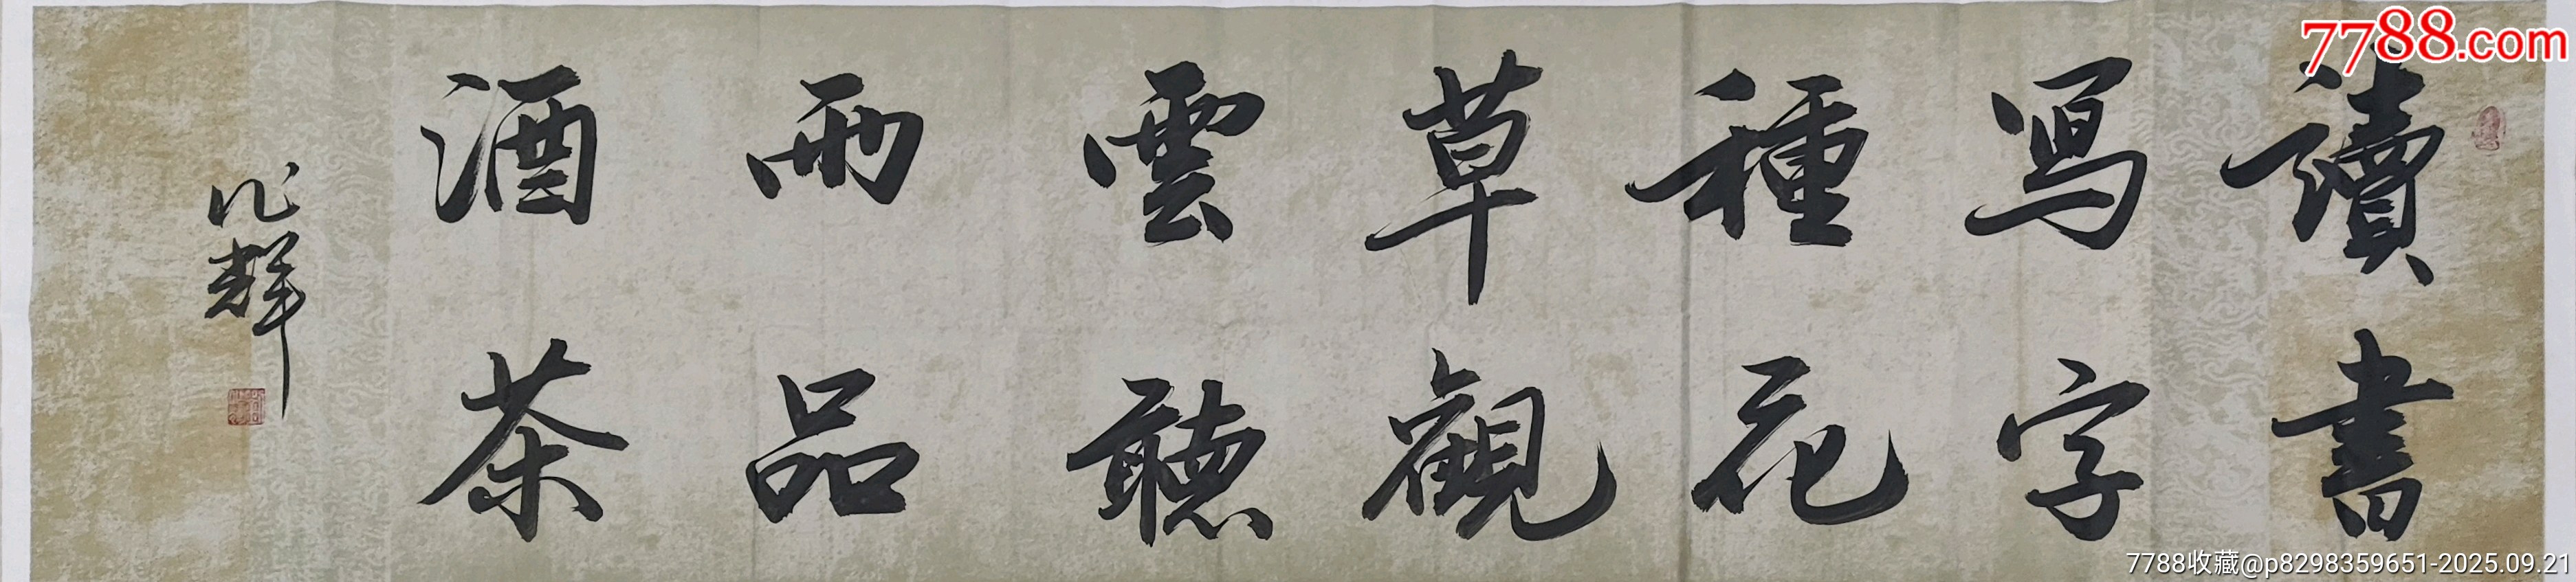 讀書
寫字
種花
草觀
雲聽
雨品
酒茶
輝
7788.com
7788收藏@p8298359651-2025.09.21